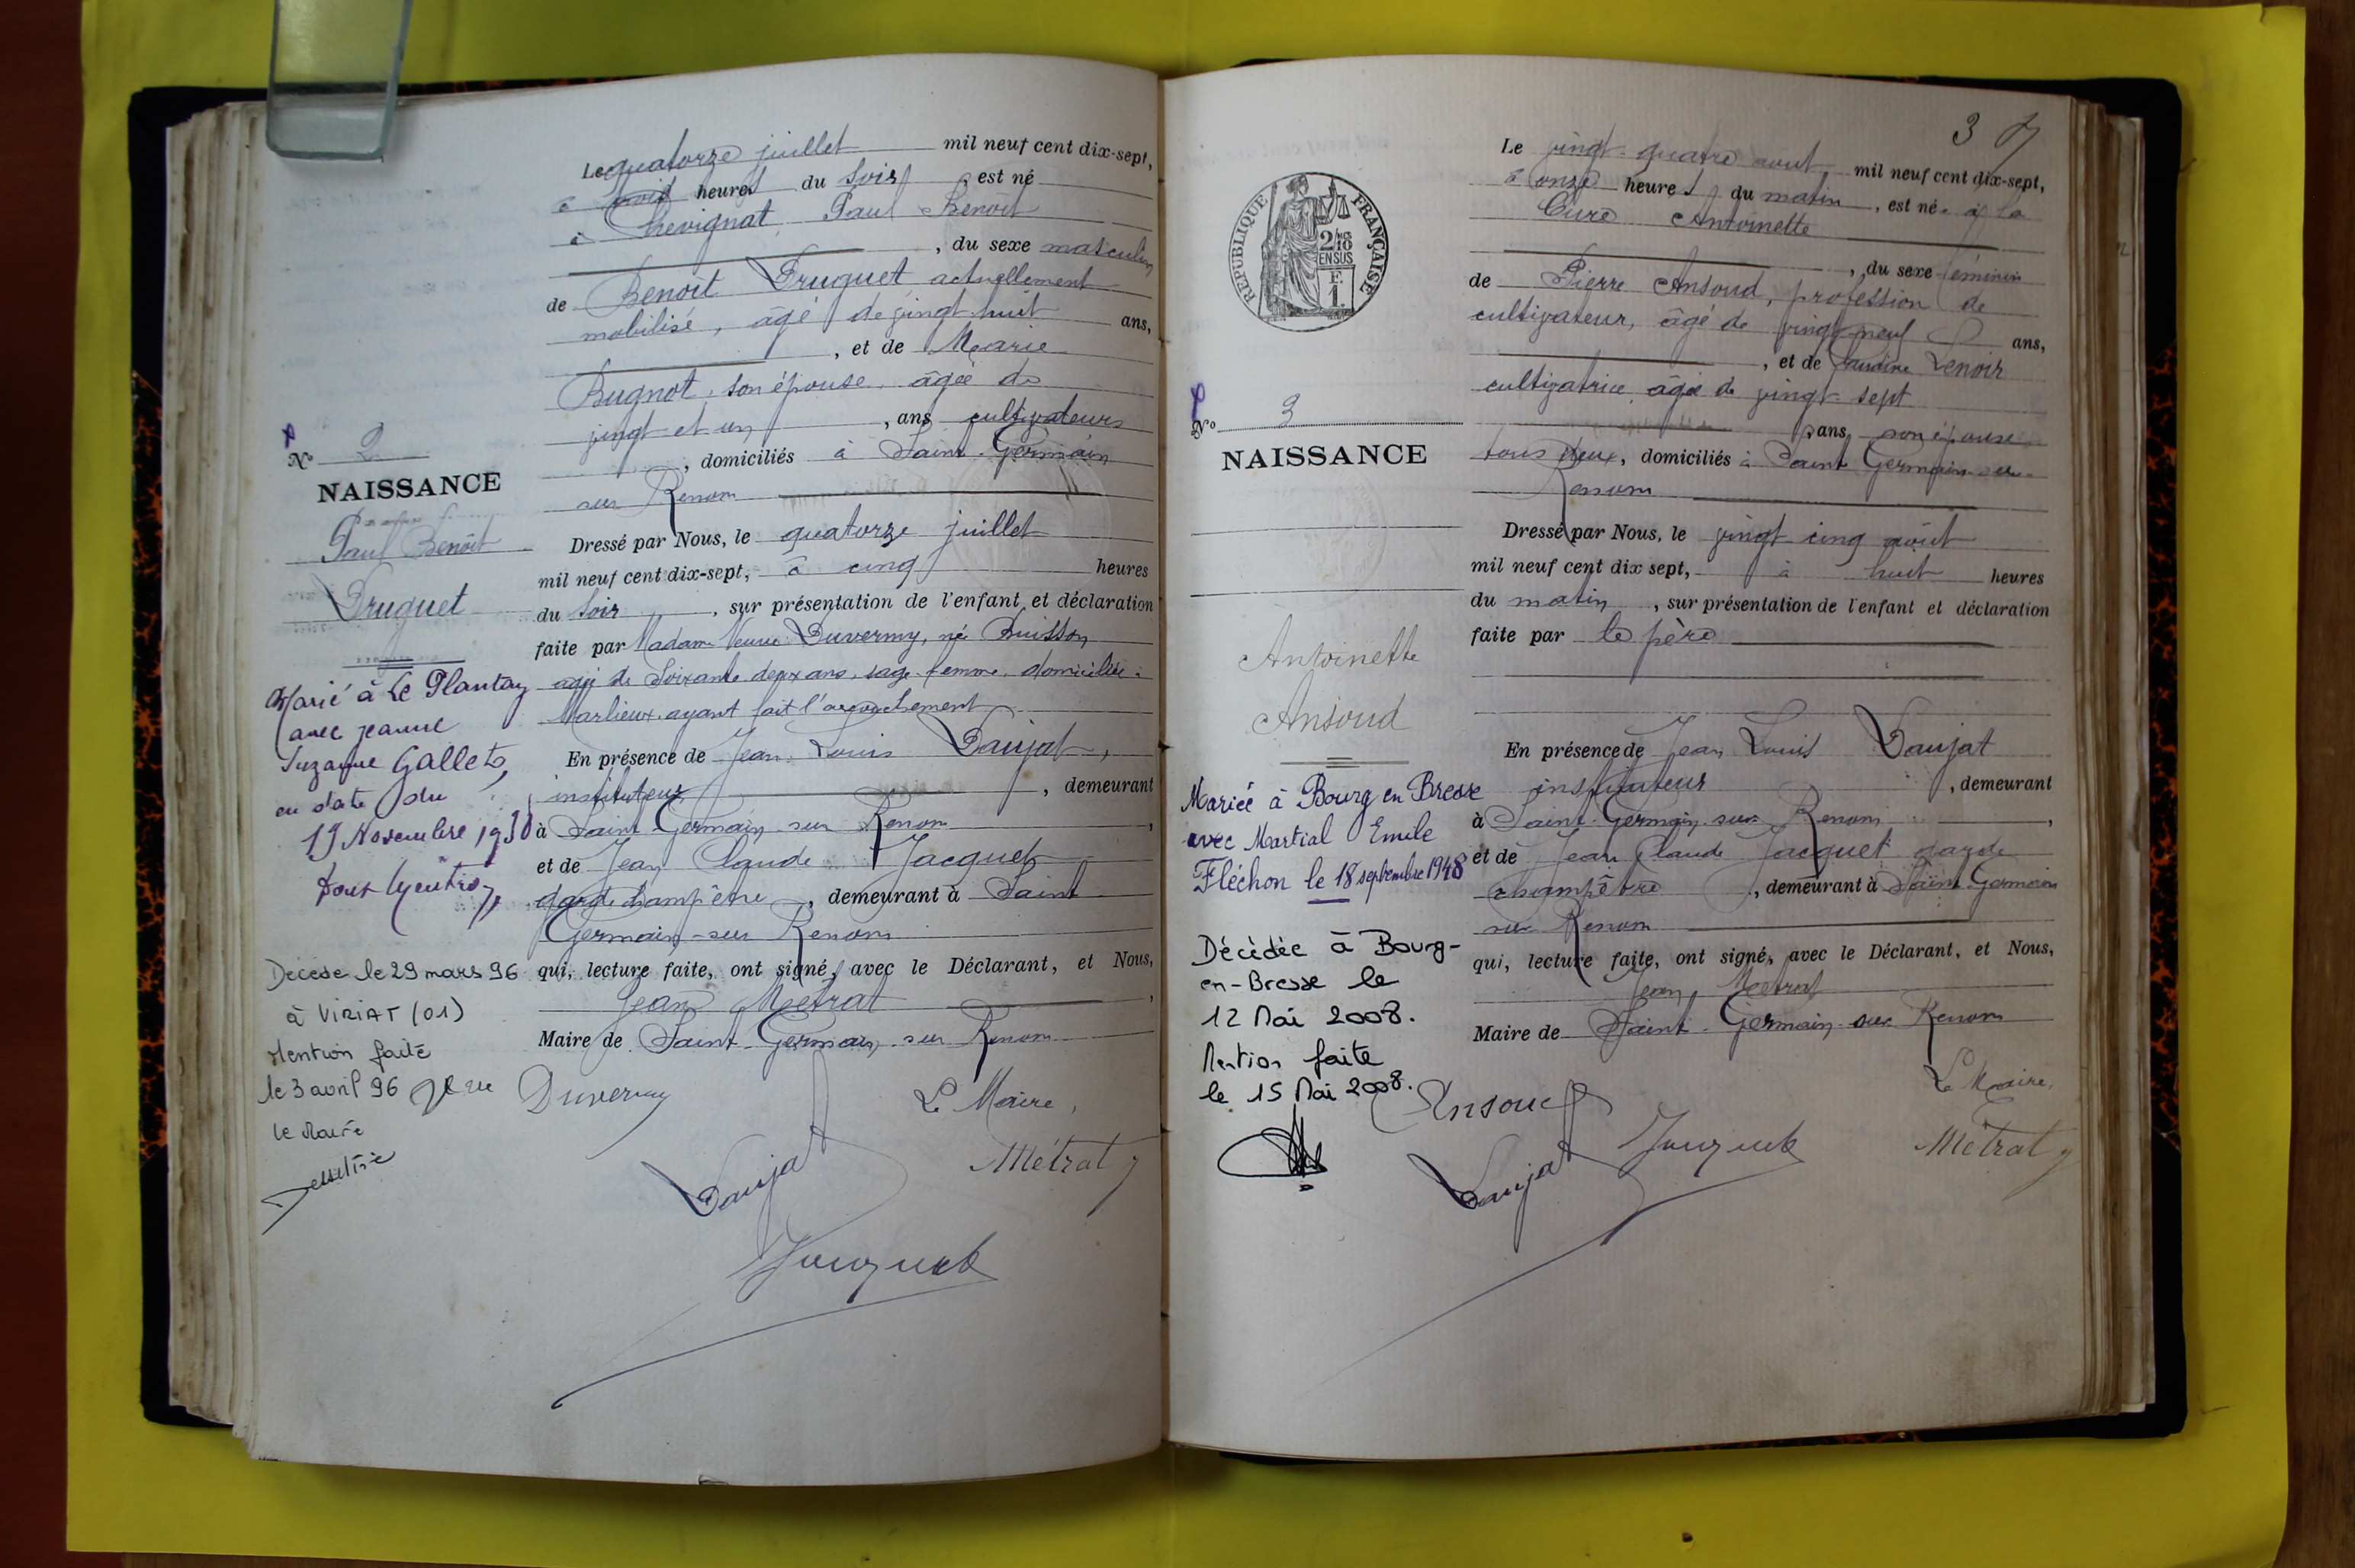 Le quatorze juillet mil neuf cent dix-sept,
à trois heures du soir est né
à Chevignat Paul Benoit
, du sexe masculin
de Benoît Druguet actuellement
mobilisé, âgé de vingt-huit ans,
, et de Marie
Bugnot, son épouse, âgée de
vingt et un, ans cultivateurs
, domiciliés à Saint-Germain
sur Renom
Dressé par Nous, le quatorze juillet
mil neuf cent dix-sept, à cinq heures
du soir, sur présentation de l'enfant et déclaration
faite par Madame Veuve Duvernay, né Buisson
agé de soixante deux ans, sage-femme, domiciliée à
Marlieux, ayant fait l'accouchement
En présence de Jean Louis Daujat,
instituteur, demeurant
à Saint-Germain-sur Renom,
et de Jean Claude Jacquet
garde champêtre, demeurant à Saint
Germain-sur Renom
qui, lecture faite, ont signé, avec le Déclarant, et Nous,
Jean Métrat,
Maire de Saint-Germain-sur Renom
Duvernay
Le Maire,
Daujat
Métrat
Jacquet
No 2
NAISSANCE
Paul Benoit
Druguet
Marié à Le Plantay
avec Jeanne
Suzanne Gallet,
en date du
19 Novembre 1938
Décédé le 29 mars 96
à VIRIAT (01)
Mention faite
le 3 avril 96
le Maire
3
Le vingt-quatre aout mil neuf cent dix-sept,
à onze heures du matin, est née à la
Cure Antoinette
, du sexe féminin
de Pierre Ansoud, profession de
cultivateur, âgé de vingt-neuf ans,
, et de Claudine Lenoir
cultivatrice âgée de vingt-sept
ans, son épouse
tous deux, domiciliés à Saint Germain-sur-
Renom
Dressé par Nous, le vingt-cinq août
mil neuf cent dix sept, à huit heures
du matin, sur présentation de l'enfant et déclaration
faite par le père
En présence de Jean Louis Daujat
instituteur, demeurant
à Saint-Germain-sur Renom,
et de Jean Claude Jacquet garde
champêtre, demeurant à Saint-Germain
sur Renom
qui, lecture faite, ont signé, avec le Déclarant, et Nous,
Jean Métrat
Maire de Saint-Germain-sur Renom
Le Maire,
Ansoud
Jacquet
Métrat
Daujat
RÉPUBLIQUE FRANÇAISE
2/10
EN SUS
F
1.
No 3
NAISSANCE
Antoinette
Ansoud
Mariée à Bourg en Bresse
avec Martial Emile
Fléchon le 18 septembre 1948
Décédée à Bourg-
en-Bresse le
12 Mai 2008.
Mention faite
le 15 Mai 2008.